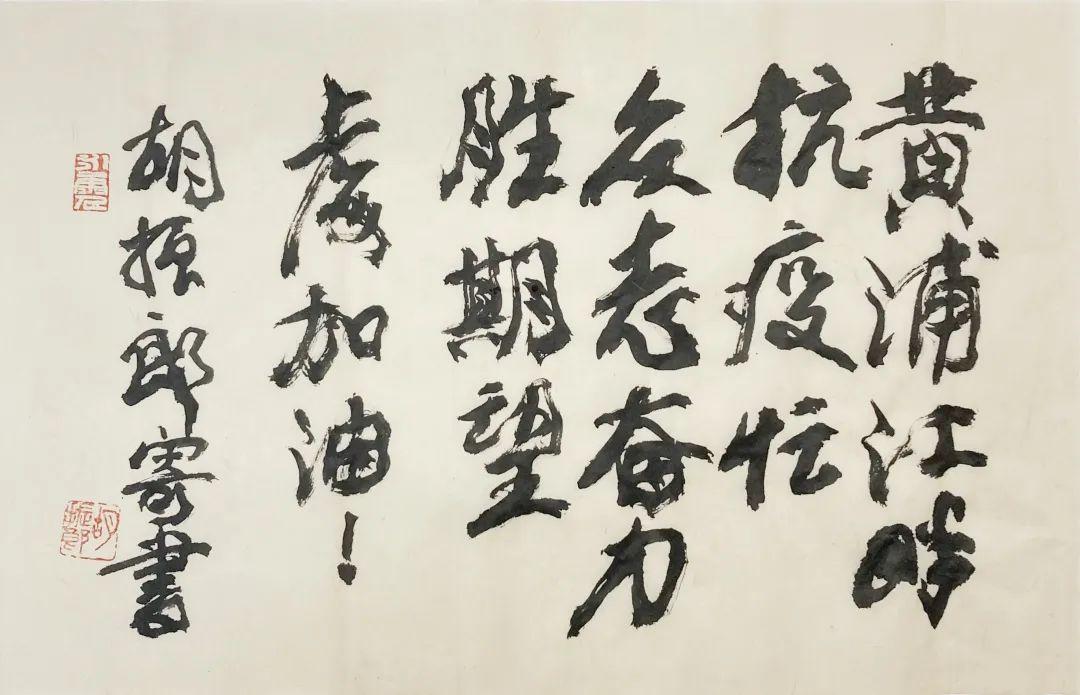 黄浦江畔
抗疫忙
众志奋力
胜期望
上海加油！
胡振郎寄书
胡振郎